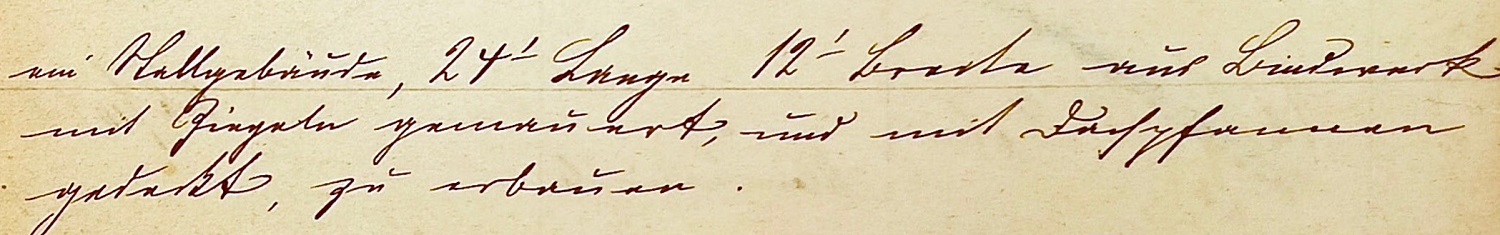 ein Stallgebäude, 24' Lange 12' Breite aus Bindwerk
mit Ziegeln gemauert, und mit Dachpfannen
gedeckt, zu erbauen.